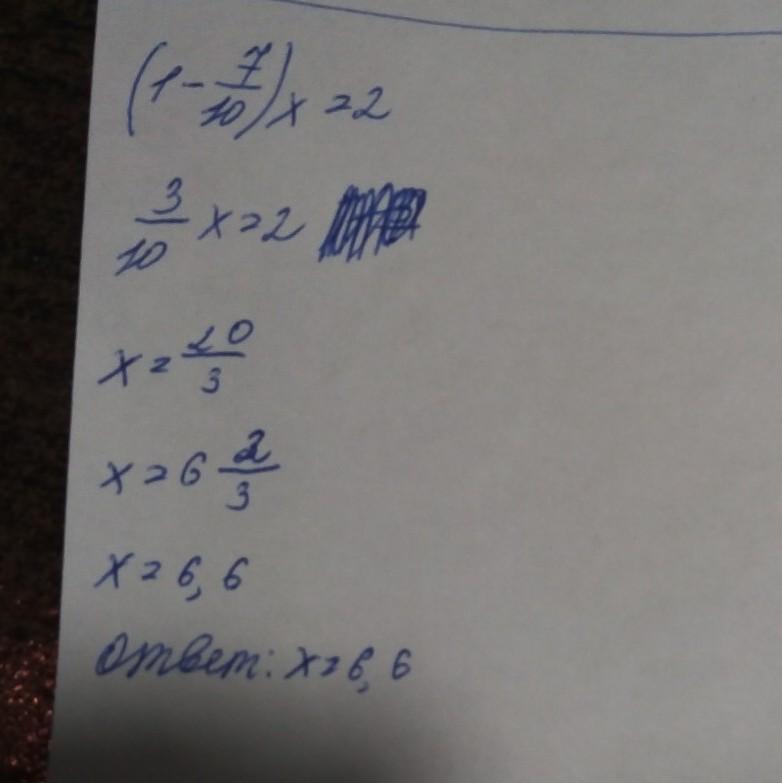 (1 - 7/10) x = 2
3/10 x = 2
x = 20/3
x = 6 2/3
x = 6,6
Ответ: x = 6,6